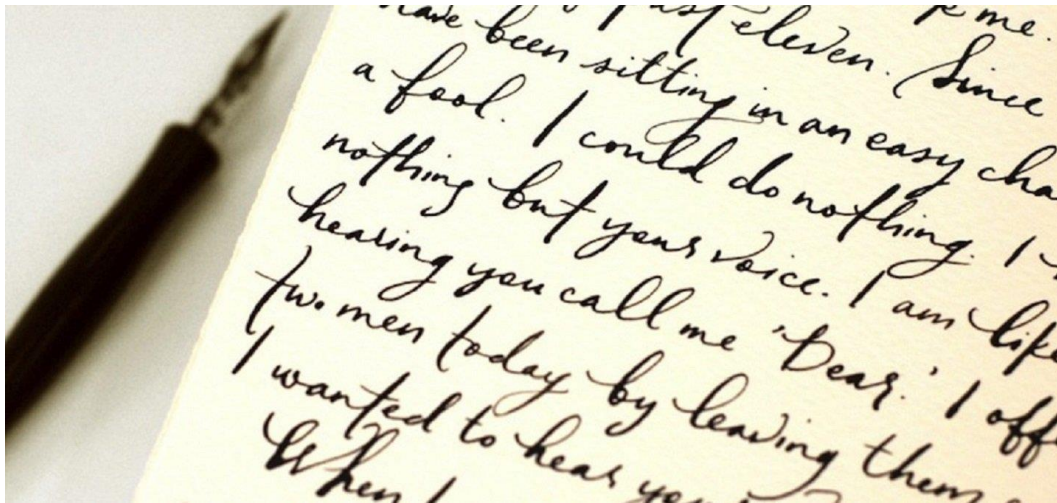 me.
have been sitting in an easy cha
past eleven. Since
a fool. I could do nothing. I
nothing but your voice. I am like
hearing you call me 'Dear.' I off
two men today by leaving them
I wanted to hear you
When I